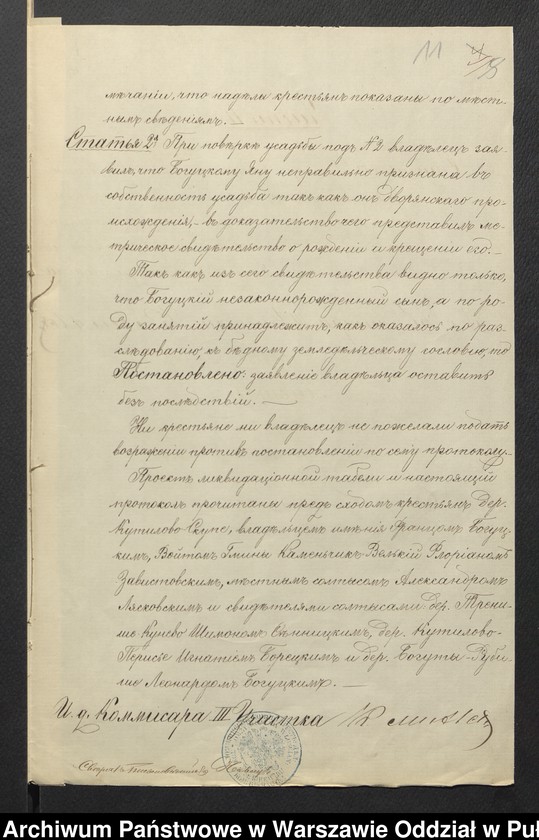 11
мѣчаніи, что надѣлы крестьянъ показаны по мѣст-
нымъ свѣдѣніямъ.
Статья 2ѧ При повѣркѣ усадьбы подъ №2 владѣлецъ зая-
вилъ, что Богуцкому Яну неправильно признана въ
собственность усадьба такъ какъ онъ дворянскаго про-
исхожденія, – въ доказательство чего представилъ ме-
трическое свидѣтельство о рожденіи и крещеніи его. –
Такъ какъ изъ сего свидѣтельства видно только,
что Богуцкій незаконнорожденный сынъ, а по ро-
ду занятій принадлежитъ, какъ оказалось по раз-
слѣдованію, къ бѣдному земледѣльческому сословію, то
Постановлено: заявленіе владѣльца оставить
безъ послѣдствій. —
Ни крестьяне ни владѣлецъ не пожелали подать
возраженій противъ постановленій по сему протоколу.
Проектъ ликвидаціонной табели и настоящій
протоколъ прочитаны предъ сходомъ крестьянъ дер.
Кутилово Скупе, владѣльцемъ имѣнія Францомъ Богуц-
кимъ, Войтомъ Гмины Каменьчикъ Велькій Флоріаномъ
Завистовскимъ, мѣстнымъ солтысомъ Александромъ
Лясковскимъ и свидѣтелями солтысами дер. Трени-
ше Кунево Шимономъ Сѣнницкимъ, дер. Кутилово-
Перысье Игнатіемъ Борецкимъ и дер. Богуты-Руби-
ше Леонардомъ Богуцкимъ. —
И. д. Коммисара III Участка
Archiwum Państwowe w Warszawie Oddział w Puł